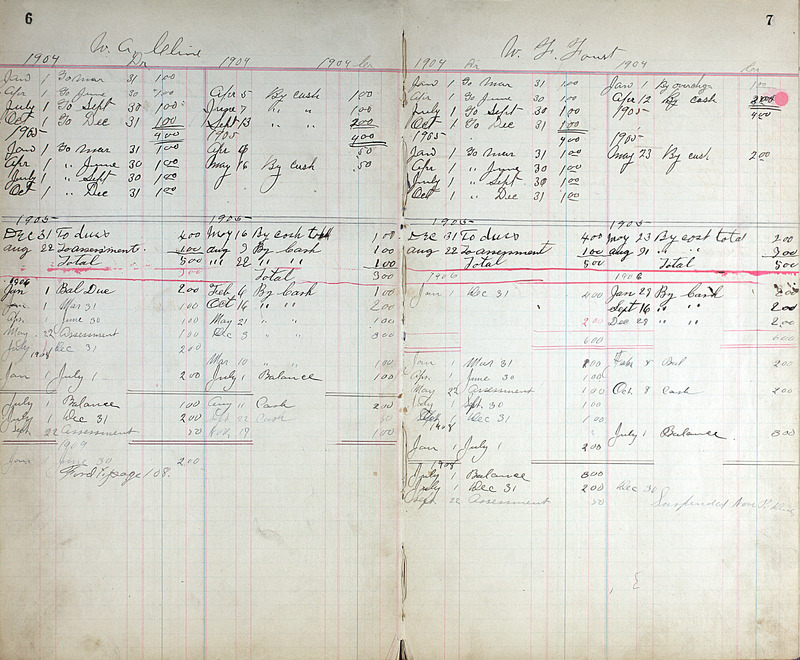 6
W. A. Cline
1904 Dr 1904 1904 Cr
Jan 1 To Mar 31 1.00
Apr 1 To June 30 1.00 Apr 5 By cash 1.00
July 1 To Sept 30 1.00 June 7 " " 1.00
Oct 1 To Dec 31 1.00 Sept 13 " " 2.00
1905 4.00 1905 4.00
Jan 1 To Mar 31 1.00 Apr 4 50
Apr 1 " June 30 1.00 May 16 By cash 50
July 1 " Sept 30 1.00
Oct 1 " Dec 31 1.00
1905 1905
Dec 31 To dues 4 00 May 16 By cash total 1 00
Aug 22 To assessment. 1 00 Aug 9 By Cash 1 00
Total 5 00 " 22 " " 1 00
Total 3 00
1906
Jan 1 Bal Due 2 00 Feb 6 By Cash 1 00
Jan 1 Mar 31 1 00 Oct 14 " " 2 00
Apr 1 June 30 1 00 May 21 " " 1 00
May 22 Assessment 1 00 Dec 3 " " 3 00
July 1 Dec 31 2 00
1908 Mar 10 " " 1 00
Jan 1 July 1 2 00 July 1 Balance 1 00
July 1 Balance 1 00 Aug 11 Cash 2 00
July 1 Dec 31 2 00 Sept 22 Cash
Sept 22 Assessment 50 Nov 17 1 00
1909
Jan 1 June 30 2 00
Ford to page 108.
7
W. F. Foust
1904 Dr 1904 Cr
Jan 1 To Mar 31 1.00 Jan 1 By overchg 1 00
Apr 1 To June 30 1.00 Apr 12 By cash 3 00
July 1 To Sept 30 1.00 1905 4 00
Oct 1 To Dec 31 1.00
1905 4.00 1905
Jan 1 To Mar 31 1.00 May 23 By cash 2.00
Apr 1 " June 30 1.00
July 1 " Sept 30 1.00
Oct 1 " Dec 31 1.00
1905 1905
Dec 31 To dues 4 00 May 23 By cost total 2 00
Aug 22 To assessment 1 00 Aug 9 " " 3 00
Total 5 00 Total 5 00
1906 1906
Jan 1 Dec 31 4 00 Jan 29 By Cash 2 00
Sept 16 " " 2 00
2 00 Dec 29 " " 2 00
6 00 6 00
Jan 1 Mar 31 1 00 Feb 8 Bal 2 00
Apr 1 June 30 1 00
May 22 Assessment 1 00 Oct 8 Cash 2 00
July 1 Sept 30 1 00
Sept 1 Dec 31 1 00
1908 July 1 Balance 3 00
Jan 1 July 1 2 00
1908
July 1 Balance 3 00
July 1 Dec 31 2 00 Dec 30
Sept 22 Assessment 50 Suspended